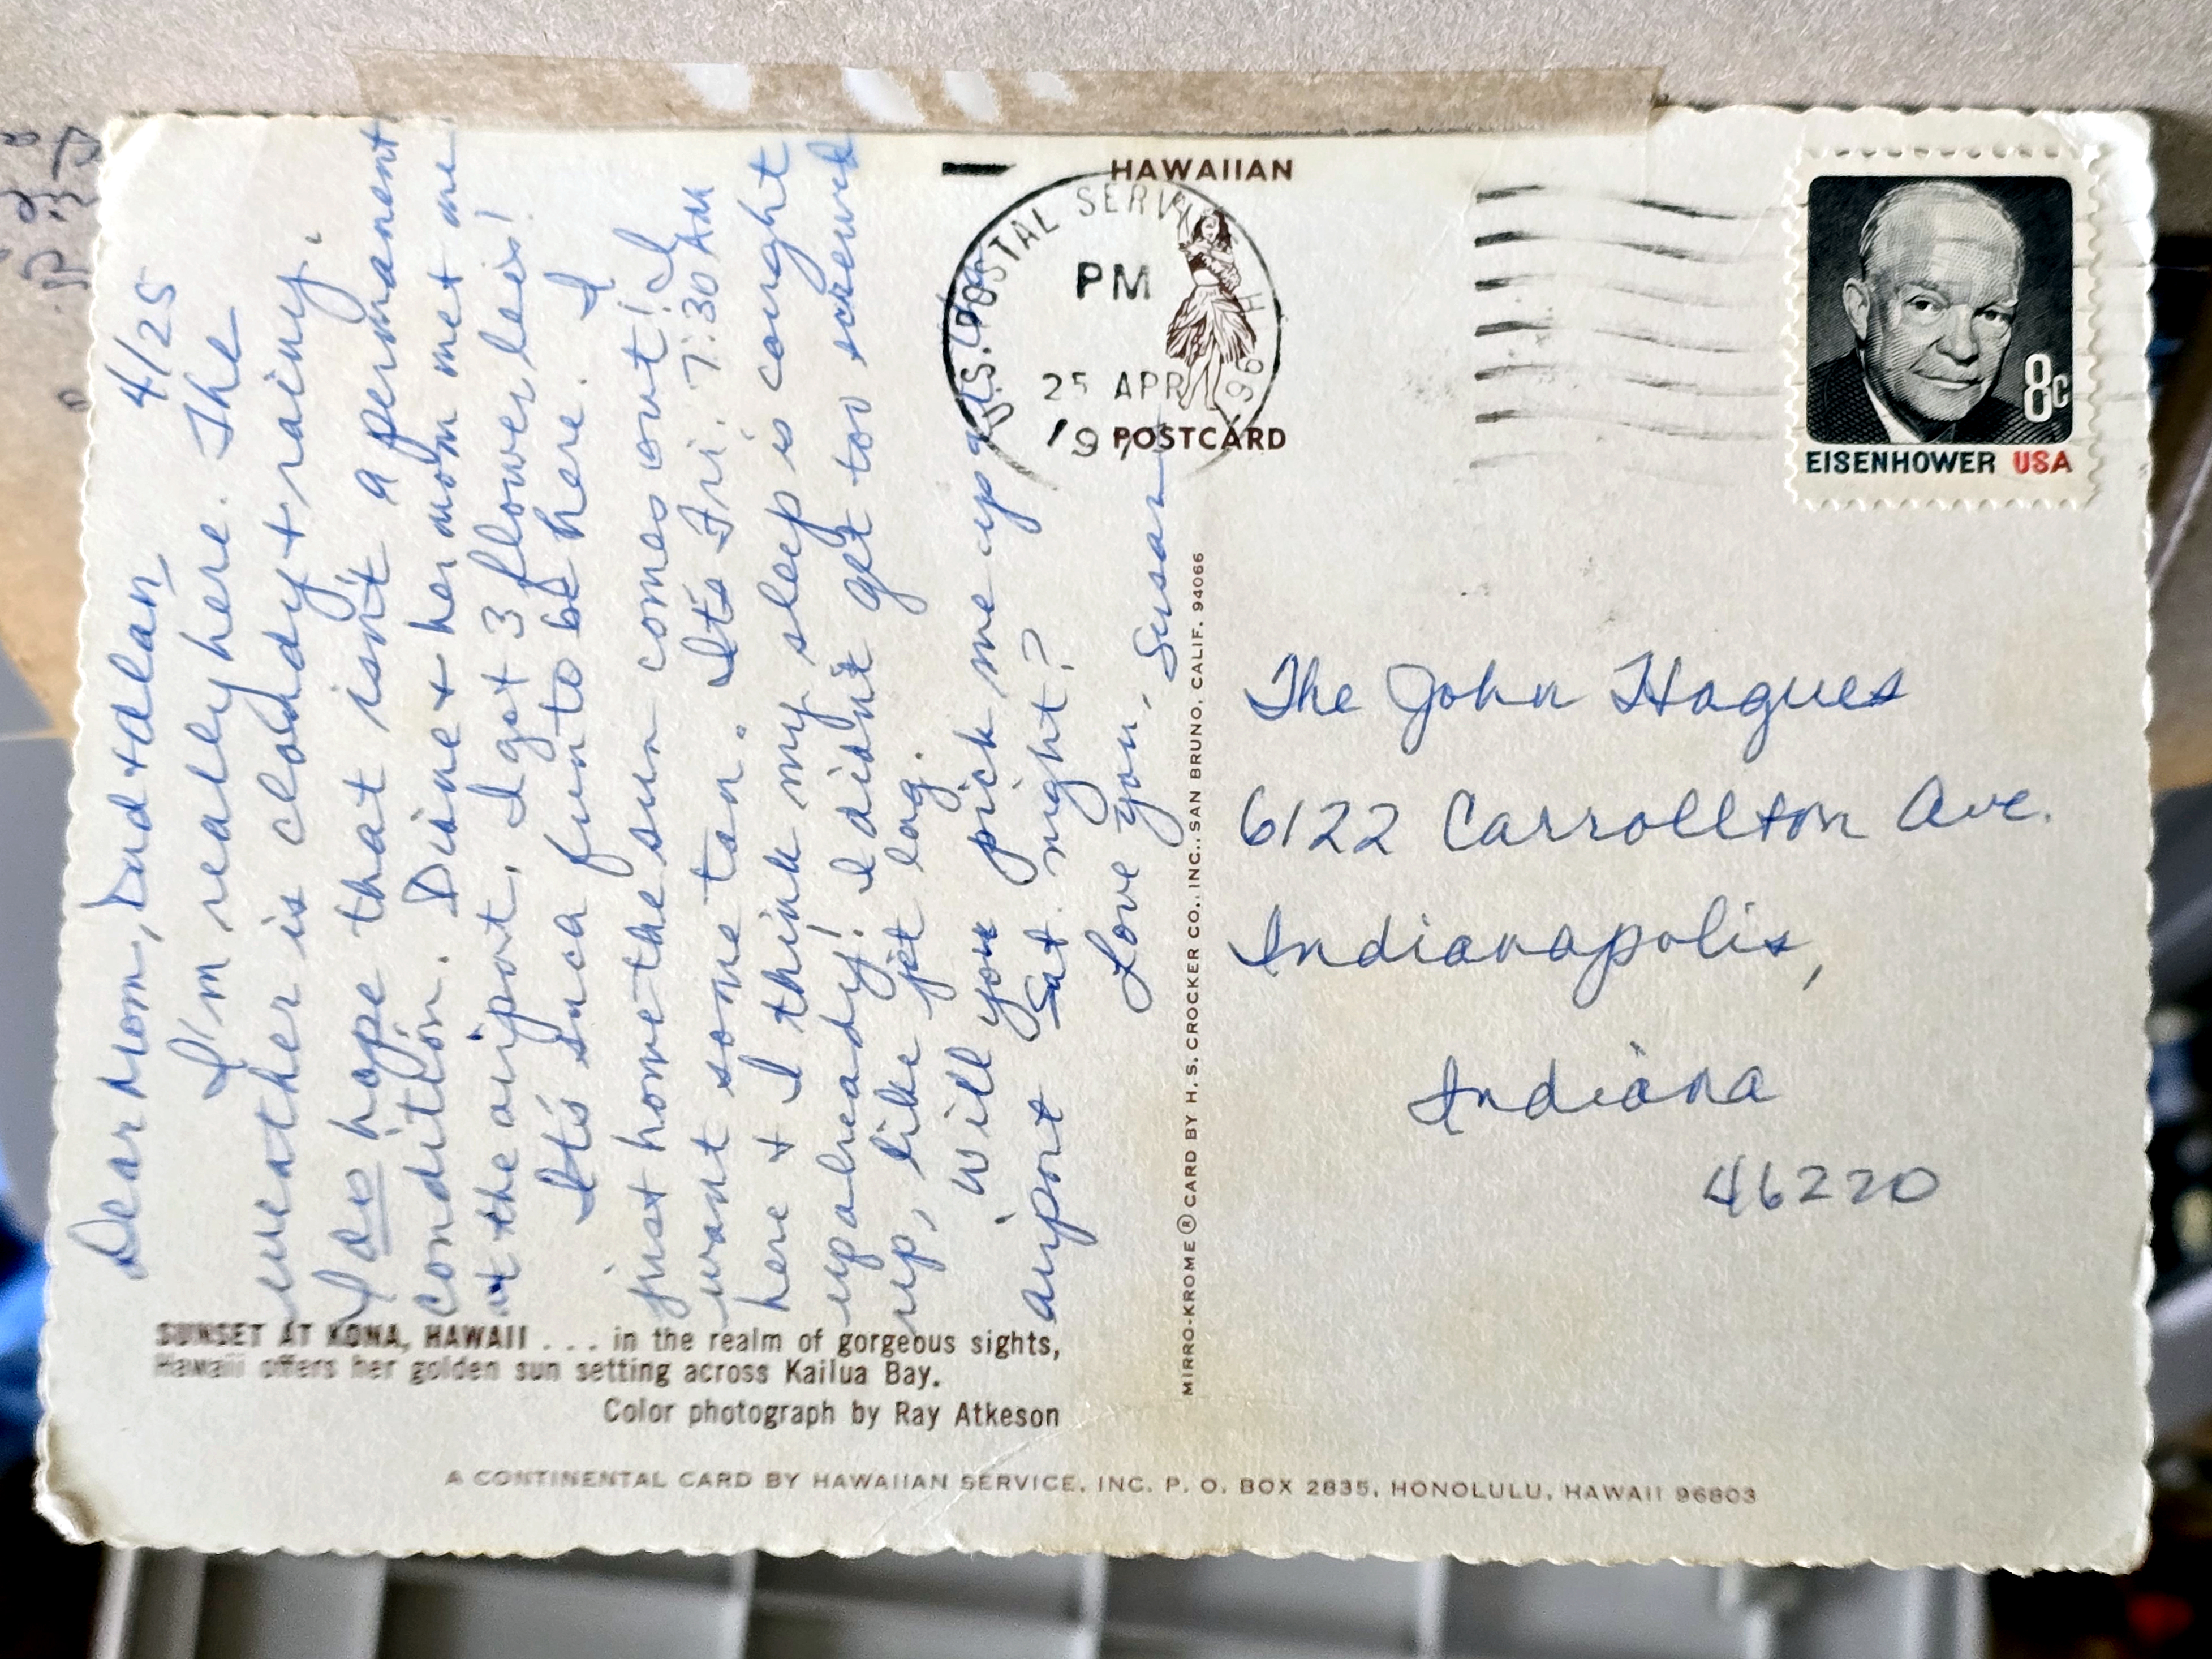 4/25
Dear Mom, Dad + Alan,
I'm really here. The
weather is cloudy + rainy.
I do hope that isn't a permanent
condition. Diane + her mom met me
at the airport. I got 3 flower leis!
It's such fun to be here. I
just hope the sun comes out! I
want some tan. It's Fri. 7:30 AM
here & I think my sleep is caught
up already! I didn't get too screwed
up, like jet lag.
Will you pick me up at the
airport Sat. night?
Love you,
Susan
SUNSET AT KONA, HAWAII . . . in the realm of gorgeous sights,
Hawaii offers her golden sun setting across Kailua Bay.
Color photograph by Ray Atkeson
MIRRO-KROME ® CARD BY H. S. CROCKER CO., INC., SAN BRUNO, CALIF. 94066
HAWAIIAN
POSTCARD
U.S. POSTAL SERVICE
PM
25 APR
EISENHOWER USA
8c
The John Hagues
6122 Carrollton Ave.
Indianapolis,
Indiana
46220
A CONTINENTAL CARD BY HAWAIIAN SERVICE, INC. P. O. BOX 2835, HONOLULU, HAWAII 96803